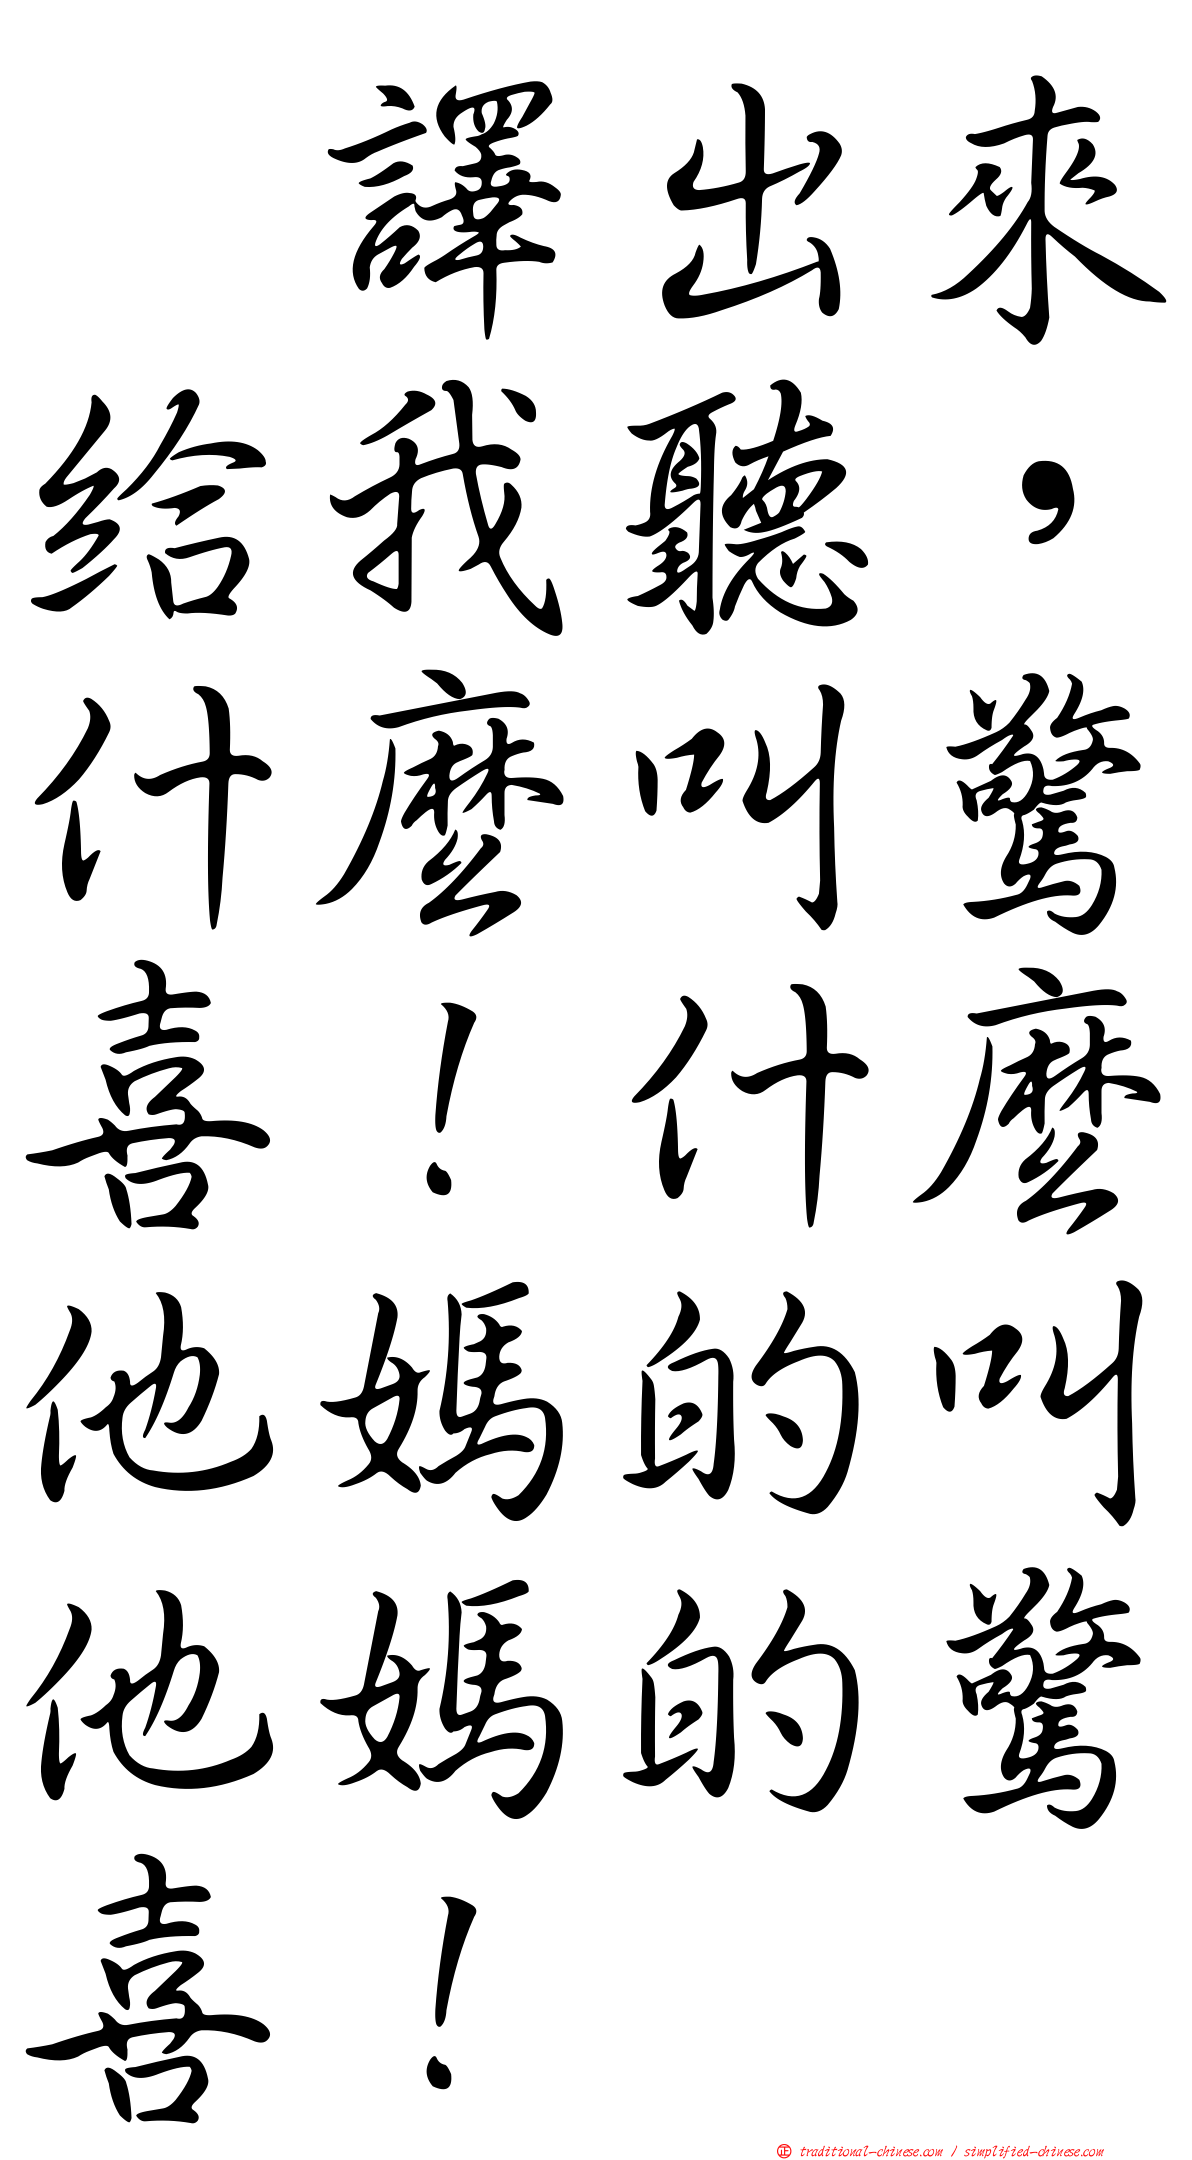 譯出來
給我聽，
什麼叫驚
喜！什麼
他媽的叫
他媽的驚
喜！
正 traditional-chinese.com / simplified-chinese.com